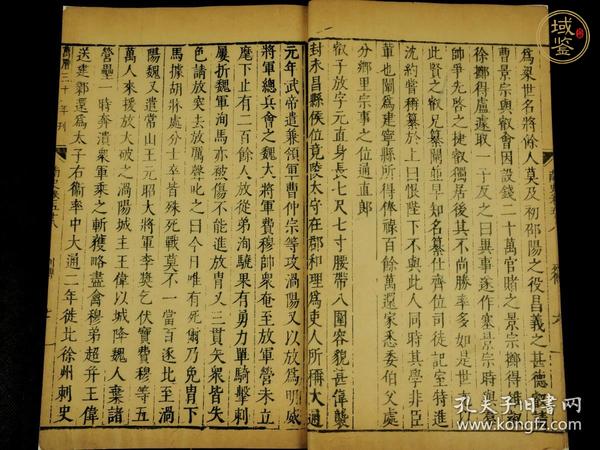 為梁世名將餘人莫及初邵陽之役昌義之甚德叡請
曹景宗與叡會因設錢二十萬官賭之景宗擲得雉
徐擲得盧遽取一子反之曰異事遂作塞景宗時與
帥爭先啓之捷叡獨居後其不尚勝率多如是世
此賢之叡兄纂闡並早知名纂仕齊位司徒記室特進
沈約嘗稱纂於上曰恨陛下不與此人同時其學非臣
輩也闡為建寧縣所得俸祿百餘萬還家悉委伯父處
分鄉里宗事之位通直郎
叡子放字元直身長七尺七寸腰帶八圍容貌甚偉襲
封永昌縣侯位竟陵太守在郡和理為吏人所稱大通
元年武帝遣兼領軍曹仲宗等攻渦陽又以放為明威
將軍總兵會之魏大將軍費穆帥衆奄至放軍營未立
麾下止有二百餘人放從弟洵驍果有勇力單騎擊刺
屢折魏軍洵馬亦被傷不能進放胄又三貫矢衆皆失
色請放突去放厲聲叱之曰今日唯有死爾乃免胄下
馬據胡牀處分士卒皆殊死戰莫不一當百逐北至渦
陽魏又遣常山王元昭大將軍李奬乞伏寶費穆等五
萬人來援放大破之渦陽城主王偉以城降魏人棄諸
營壘一時奔潰衆軍乘之斬獲略盡禽穆弟超并王偉
送建鄴還為太子右衞率中大通二年徙北徐州刺史
域鉴
孔夫子旧书网
www.kongfz.com